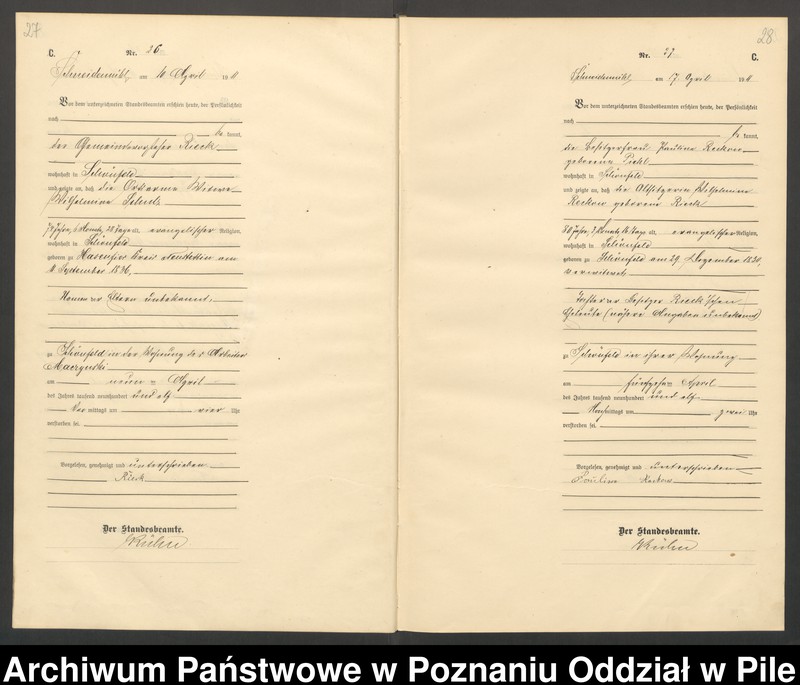 27
C.
Nr. 26
Schneidemühl, am 10 April 1911
Vor dem unterzeichneten Standesbeamten erschien heute, der Persönlichkeit
nach
be kannt,
der Gemeindevorsteher Rieck
wohnhaft in Schönfeld
und zeigte an, daß die Ortsarme Witwe
Wilhelmine Schulz
74 Jahre, 6 Monate, 28 Tage alt, evangelischer Religion,
wohnhaft in Schönfeld
geboren zu Kreis Neustettin am
11. September 1836,
Namen der Eltern unbekannt,
zu Schönfeld in der Wohnung des Arbeiter
Maczynski
am neun = April
des Jahres tausend neunhundert und elf
Vor mittags um vier Uhr
verstorben sei.
Vorgelesen, genehmigt und unterschrieben
Rieck
Der Standesbeamte.
Kühn
28
Nr. 27
C.
Schneidemühl am 17. April 1911
Vor dem unterzeichneten Standesbeamten erschien heute, der Persönlichkeit
nach
be kannt,
die Besitzerfrau Pauline Reckow
geborene
wohnhaft in Schönfeld
und zeigte an, daß die Altsitzerin Wilhelmine
Reckow geborene Rieck
80 Jahre, 3 Monate, Tage alt, evangelischer Religion,
wohnhaft in Schönfeld
geboren zu Schönfeld am 29. Dezember 1830,
verwitwet
Tochter der Besitzer Rieck'schen
Eheleute (nähere Angaben unbekannt)
zu Schönfeld in ihrer Wohnung
am fünfzehn = April
des Jahres tausend neunhundert und elf
Nachmittags um zwei Uhr
verstorben sei.
Vorgelesen, genehmigt und unterschrieben
Pauline Reckow
Der Standesbeamte.
Kühn
Archiwum Państwowe w Poznaniu Oddział w Pile